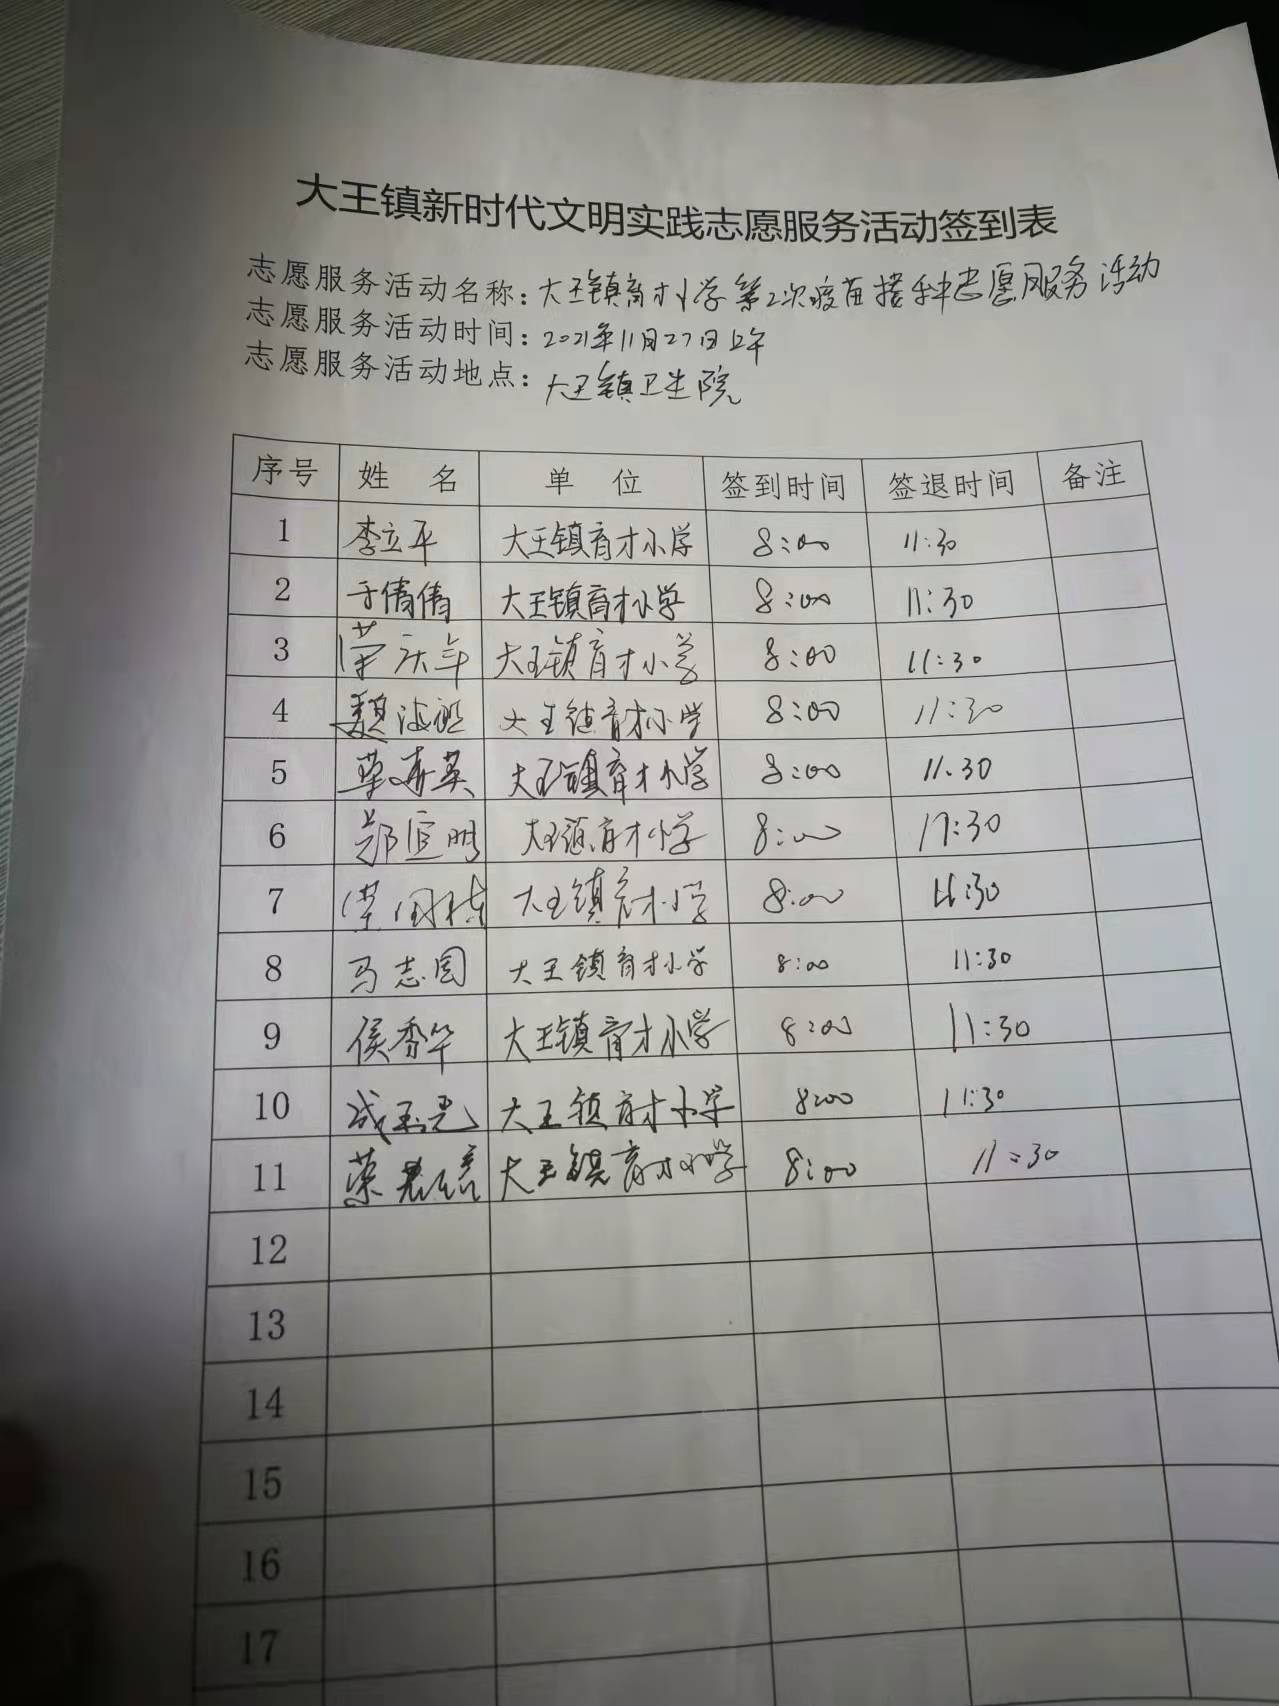 大王镇新时代文明实践志愿服务活动签到表
志愿服务活动名称：大王镇育才小学第2次疫苗接种志愿服务活动
志愿服务活动时间：2021年11月27日上午
志愿服务活动地点：大王镇卫生院
序号 姓 名 单 位 签到时间 签退时间 备注
1 李立平 大王镇育才小学 8:00 11:30
2 于倩倩 大王镇育才小学 8:00 11:30
3 荣庆年 大王镇育才小学 8:00 11:30
4 大王镇育才小学 8:00 11:30
5 大王镇育才小学 8:00 11.30
6 大王镇育才小学 8:00 11:30
7 大王镇育才小学 8:00 11:30
8 马志国 大王镇育才小学 8:00 11:30
9 侯香华 大王镇育才小学 8:00 11:30
10 大王镇育才小学 8:00 11:30
11 大王镇育才小学 8:00 11:30
12
13
14
15
16
17